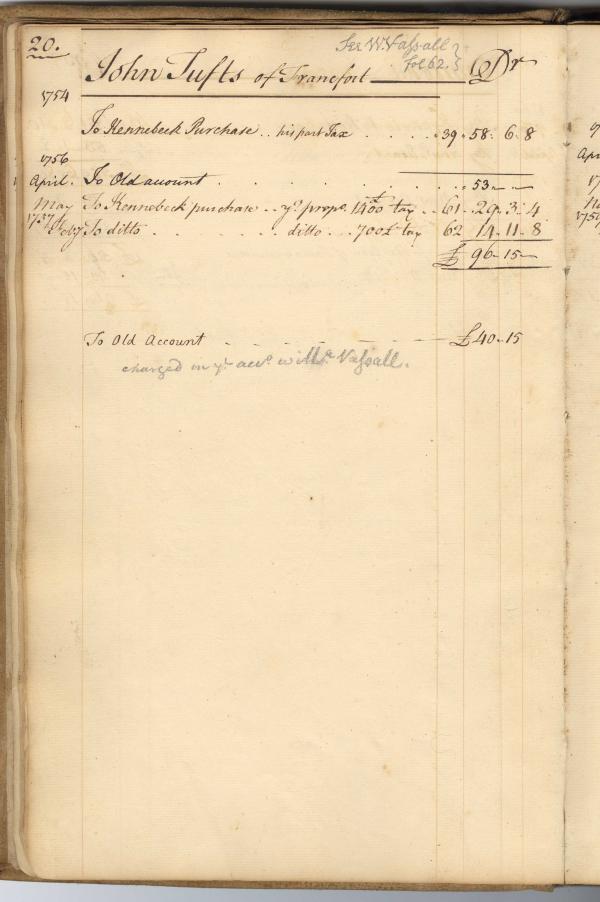 20.
See W. Vassall
fol 62.
John Tufts of Francfort Dr
1754
To Kennebeck Purchase .. his part Tax . . . . 39. 58. 6. 8
1756
April. To Old account . . . . . . . 53 - -
May To Kennebeck purchase .. ye. prope. 1400£ tax .. 61. 29. 3. 4
1757
Feby To ditto . . . . . ditto . . 700£ tax 62 14. 11. 8
£ 96. 15 -
To Old Account - - - - - £ 40.. 15
charged in ye. acco. with Vassall.